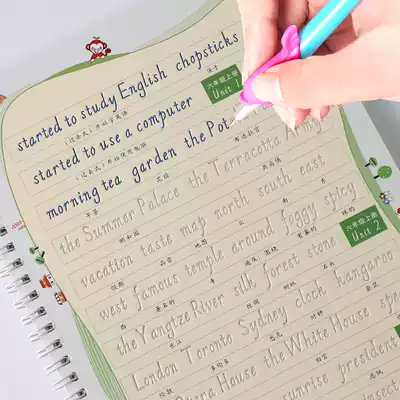 started to study English chopsticks
（过去式）开始学英语 筷子
六年级上册
Unit 1
started to use a computer
（过去式）开始使用电脑
morning tea garden the Pot
早茶 花园 布达拉宫
the Summer Palace the Terracotta Army
颐和园 兵马俑
vacation taste map north south east
假期 品尝 地图 北 南 东
六年级上册
Unit 2
west famous temple around foggy spicy
西 著名的 寺庙
the Yangtze River silk forest stone
长江 丝绸 树林 石头
London Toronto Sydney clock kangaroo
伦敦 多伦多 悉尼 时钟 袋鼠
Opera House the White House spe
白宫
sunrise president
insect